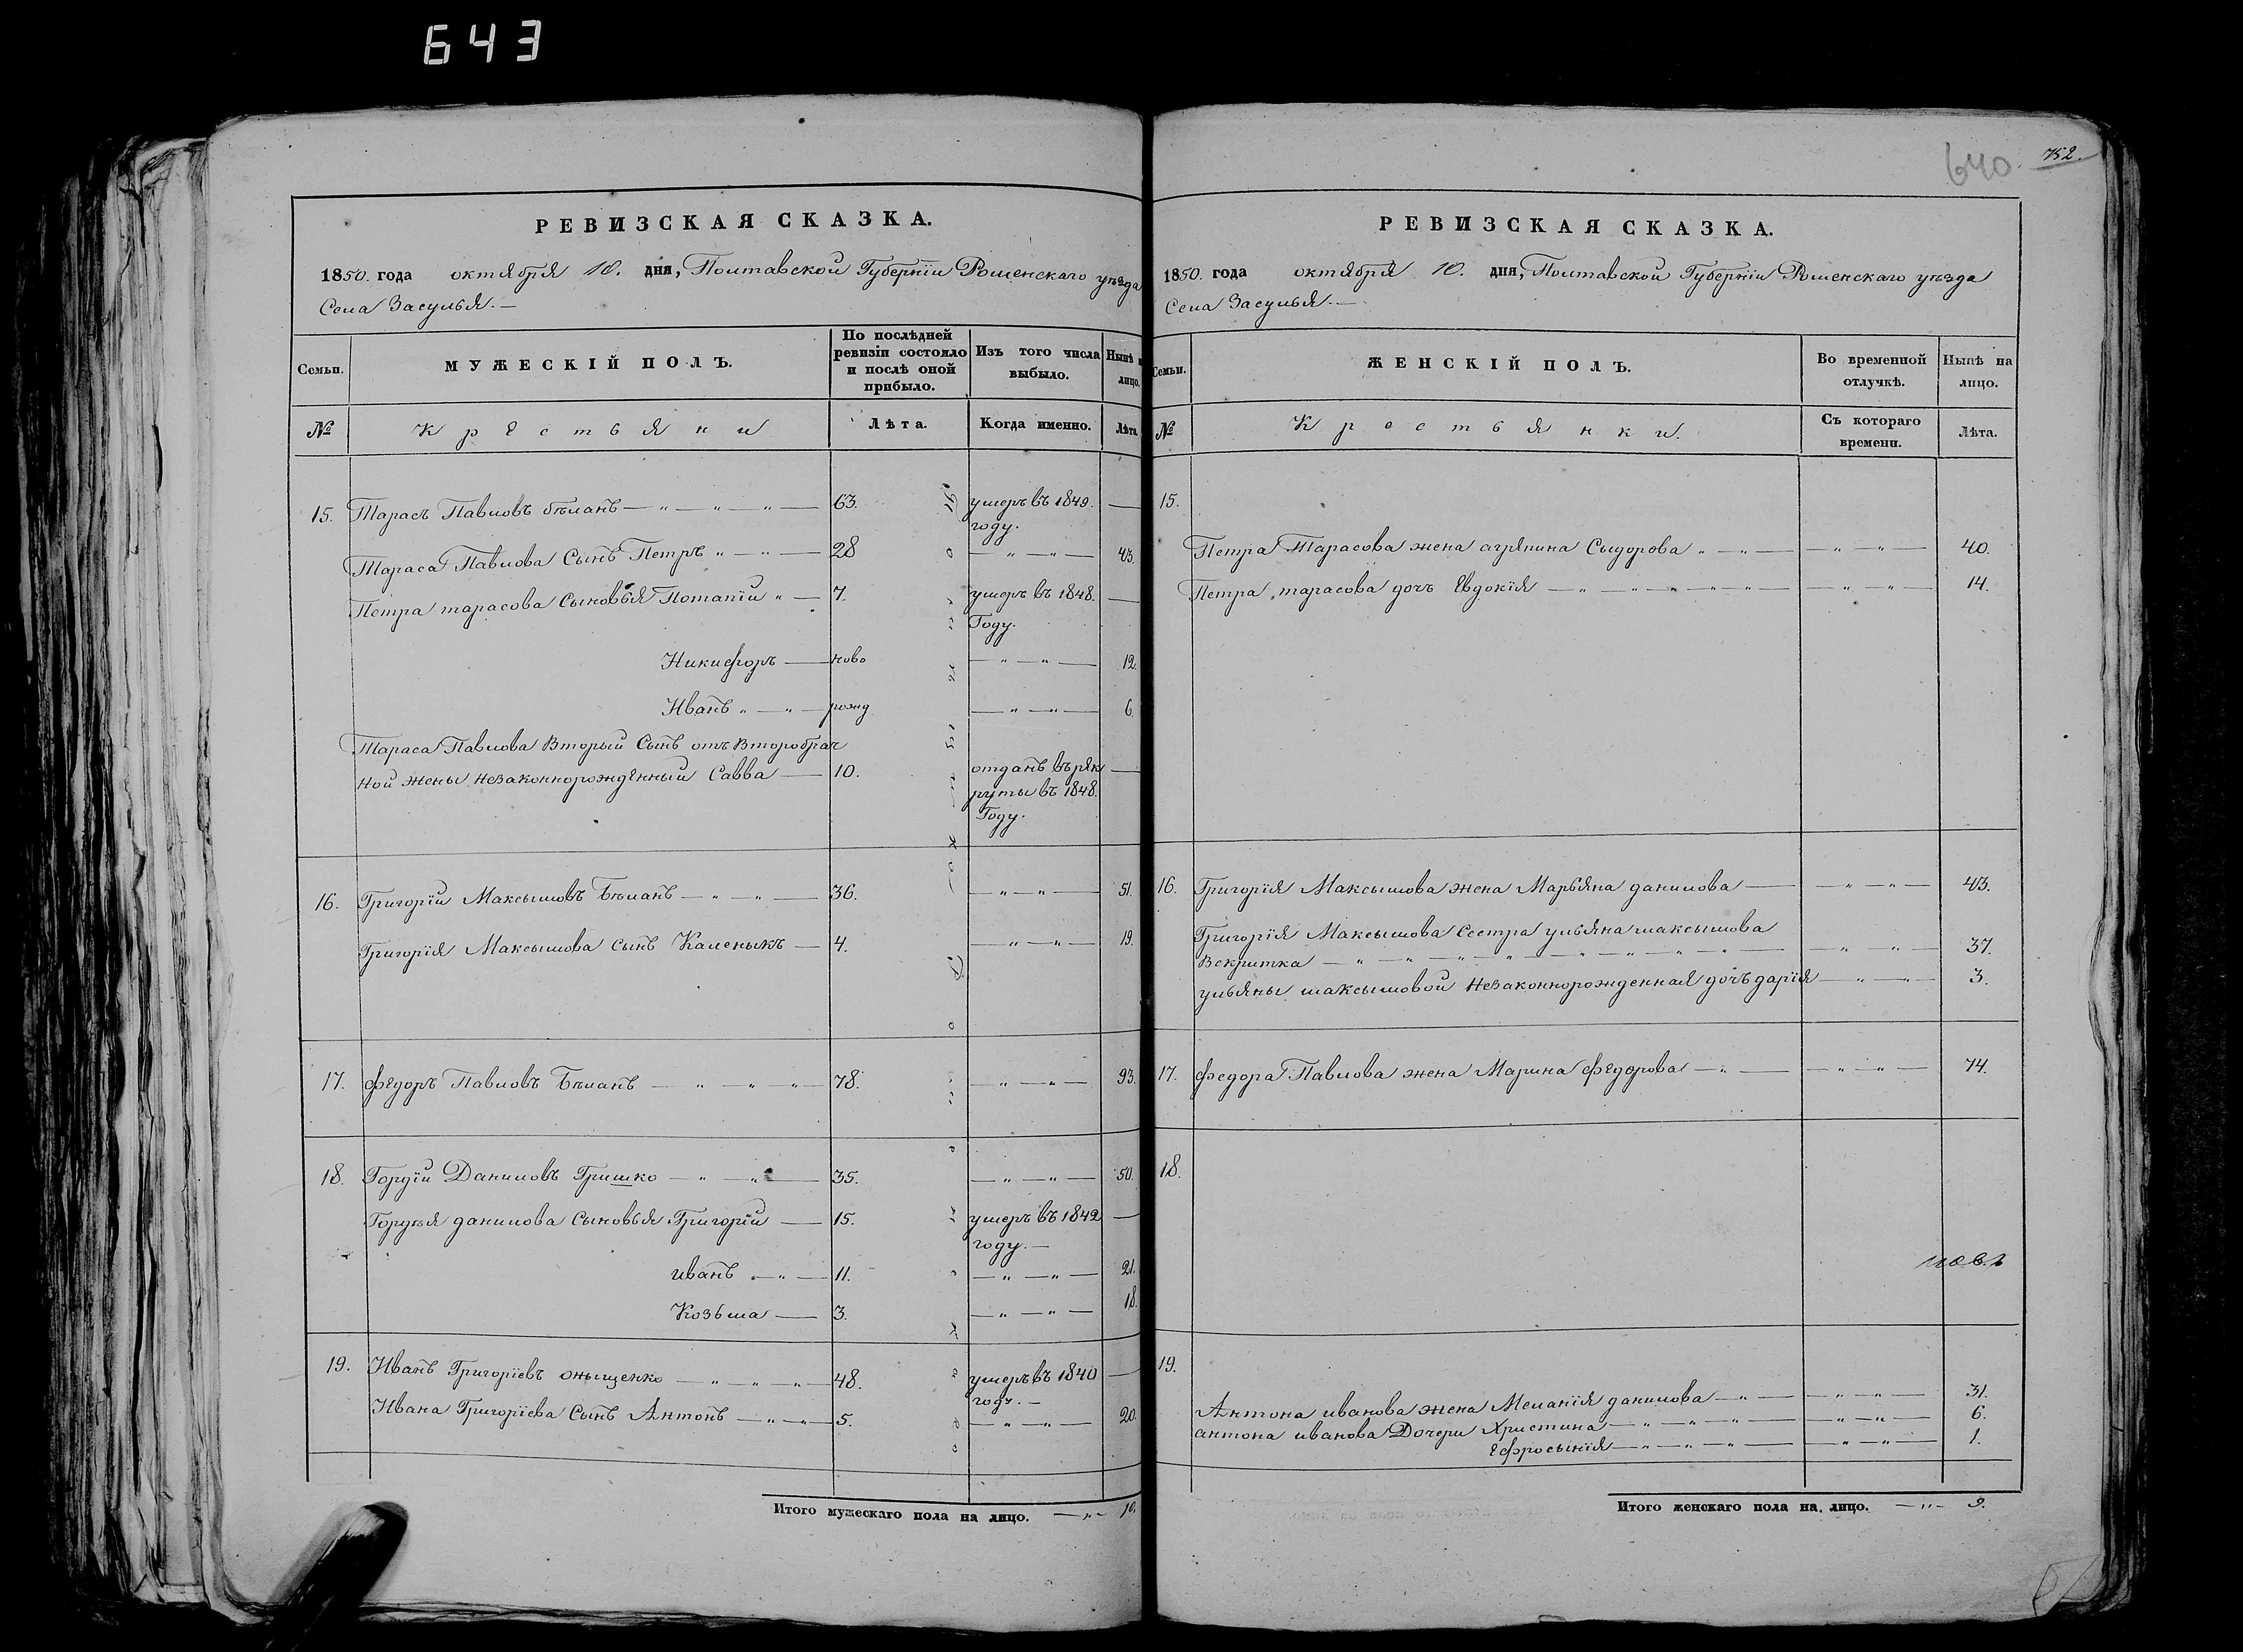 643
640.
752.
РЕВИЗСКАЯ СКАЗКА.
1850. года октября 10. дня, Полтавской Губернїи Роменскаго уѣзда
Села Засулья. —
Семьи.
МУЖЕСКІЙ ПОЛЪ.
По послѣдней ревизіи состояло и послѣ оной прибыло.
Изъ того числа выбыло.
Нынѣ на лицо.
№
Крестьяни
Лѣта.
Когда именно.
Лѣта.
15. Тарасъ Павловъ бѣланъ — „ — „ — „ — 63. умеръ въ 1849. —
году.
Тараса Павлова Сынъ Петръ „ — „ — 28 — „ — „ — 43.
Петра тарасова Сыновья Потапїй „ — 7. умеръ въ 1848. —
Году.
Никифоръ — ново — „ — „ — 12.
Иванъ „ — „ — рожд — „ — „ — 6.
Тараса Павлова Вторый Сынъ отъ Второбрач
ной жены незаконнорожденный Савва — 10. отданъ въ рек —
руты въ 1848.
Году.
16. Григорїй Максымовъ Бѣланъ — „ — „ — 36. — „ — „ — 51.
Григорїя Максымова сынъ Каленыкъ — 4. — „ — „ — 19.
17. Федоръ Павловъ Бѣланъ — „ — „ — „ — 78. — „ — „ — 93.
18. Гордїй Даниловъ Гришко — „ — „ — 35. — „ — „ — 50.
Гордѣя данилова Сыновья Григорїй — 15. умеръ въ 1842 —
году. —
иванъ „ — „ — 11. — „ — „ — 21.
Козьма — 3. — „ — „ — 18.
19. Иванъ Григорїевъ онищенко — „ — „ — „ — 48. умеръ въ 1840 —
году. —
Ивана Григорїева Сынъ Антонъ — „ — „ — 5. — „ — „ — 20.
Итого мужескаго пола на лицо. — „ — 10.
РЕВИЗСКАЯ СКАЗКА.
1850. года октября 10. дня, Полтавской Губернїи Роменскаго уѣзда
Села Засулья. —
Семьи.
ЖЕНСКІЙ ПОЛЪ.
Во временной отлучкѣ.
Нынѣ на лицо.
№
Крестьянки.
Съ котораго времени.
Лѣта.
15.
Петра Тарасова жена агрипина Сыдорова „ — „ — — „ — „ — 40.
Петра тарасова дочъ Евдокїя — „ — „ — „ — „ — „ — — „ — „ — 14.
16. Григорїя Максымова жена Марьяна данилова — — „ — „ — 43.
Григорїя Максымова Сестра ульяна максымова
Вскритка — „ — „ — „ — „ — „ — „ — „ — „ — — „ — „ — 37.
ульяны максымовой Незаконнорожденная дочъ дарїя — „ — „ — 3.
17. Федора Павлова жена Марина федорова — „ — — „ — „ — 74.
18.
19.
Антона иванова жена Меланїя данилова — „ — — „ — „ — 31.
антона иванова Дочери Христина — „ — „ — „ — — „ — „ — 6.
Ефросынїя — „ — „ — „ — — „ — „ — 1.
Итого женскаго пола на лицо. — „ — 9.